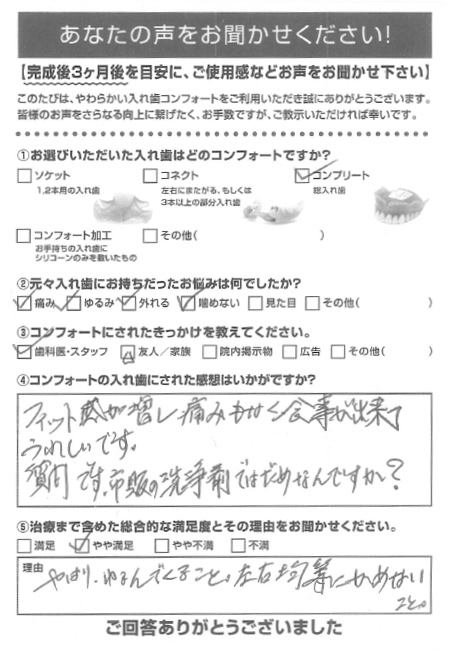 あなたの声をお聞かせください!
【完成後3ヶ月後を目安に、ご使用感などお声をお聞かせ下さい】
このたびは、やわらかい入れ歯コンフォートをご利用いただき誠にありがとうございます。
皆様のお声をさらなる向上に繋げたく、お手数ですが、ご教示いただければ幸いです。
①お選びいただいた入れ歯はどのコンフォートですか?
□ソケット □コネクト ☑コンプリート
1,2本用の入れ歯 左右にまたがる、もしくは 総入れ歯
3本以上の部分入れ歯
□コンフォート加工 □その他( )
お手持ちの入れ歯に
シリコーンのみを敷いたもの
②元々入れ歯にお持ちだったお悩みは何でしたか?
☑痛み ☑ゆるみ ☑外れる ☑噛めない □見た目 □その他( )
③コンフォートにされたきっかけを教えてください。
☑歯科医・スタッフ □友人/家族 □院内掲示物 □広告 □その他( )
④コンフォートの入れ歯にされた感想はいかがですか?
フィット感が増し痛みもなく食事が出来て
うれしいです。
質問です。市販の洗浄剤ではだめなんですか?
⑤治療まで含めた総合的な満足度とその理由をお聞かせください。
□満足 ☑やや満足 □やや不満 □不満
理由
やはり、ゆるんでくること。左右均等にかめない
こと。
ご回答ありがとうございました